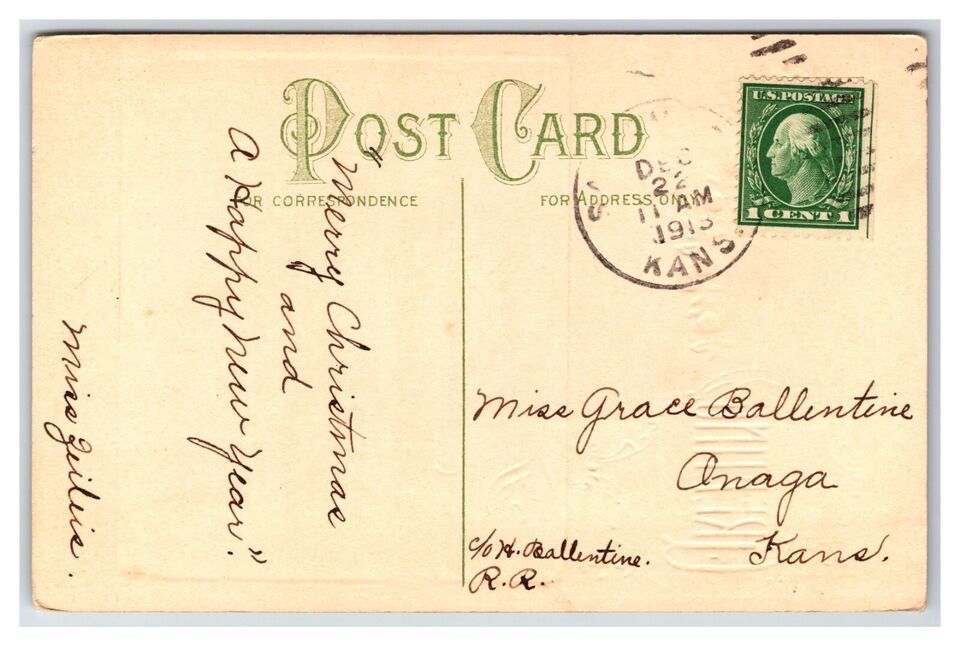 POST CARD
FOR CORRESPONDENCE
FOR ADDRESS ONLY
U.S. POSTAGE
1 CENT 1
DEC
22
11 AM
1913
KANS.
"Merry Christmas
and
A Happy New Year."
Miss
Miss Grace Ballentine
Onaga
Kans.
c/o H. Ballentine.
R.R.